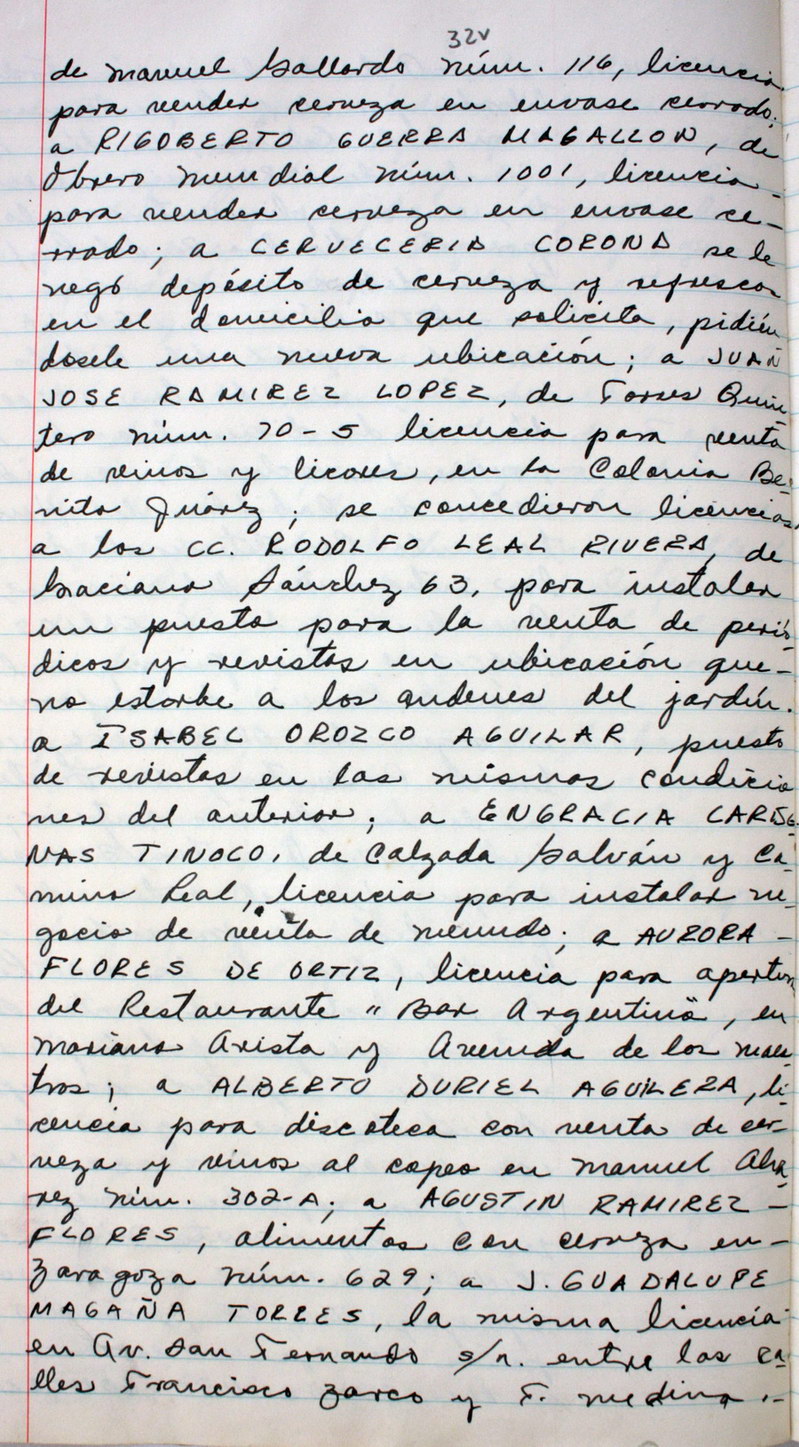 32v
de Manuel Gallardo núm. 116, licencia
para vender cerveza en envase cerrado;
a RIGOBERTO GUERRA MAGALLON, de
Obrero Mundial núm. 1001, licencia-
para vender cerveza en envase ce-
rrado; a CERVECERIA CORONA se le
negó depósito de cerveza y refrescos
en el domicilio que solicita, pidién
dosele una nueva ubicación; a JUAN
JOSE RAMIREZ LOPEZ, de Torres Quin
tero núm. 70-5 licencia para venta
de vinos y licores, en la Colonia Be-
nito Juárez; se concedieron licencias
a los CC. RODOLFO LEAL RIVERA, de
Graciano Sánchez 63, para instalar
un puesto para la venta de perió-
dicos y revistas en ubicación que-
no estorbe a los andenes del jardín.
a ISABEL OROZCO AGUILAR, puesto
de revistas en las mismas condicio
nes del anterior; a ENGRACIA CARDE-
NAS TINOCO, de Calzada Galván y Ca-
mino Real, licencia para instalar ne-
gocio de venta de menudo; a AURORA -
FLORES DE ORTIZ, licencia para apertura
del Restaurante "Bar Argentina", en
Mariano Arista y Avenida de los maes
tros; a ALBERTO DURIEL AGUILERA, li-
cencia para discoteca con venta de cer-
veza y vinos al copeo en Manuel Alva
rez núm. 302-A; a AGUSTIN RAMIREZ -
FLORES, alimentos con cerveza en-
Zaragoza núm. 629; a J. GUADALUPE
MAGAÑA TORRES, la misma licencia
en Av. San Fernando s/n. entre las ca
lles Francisco Zarco y F. Medina.-